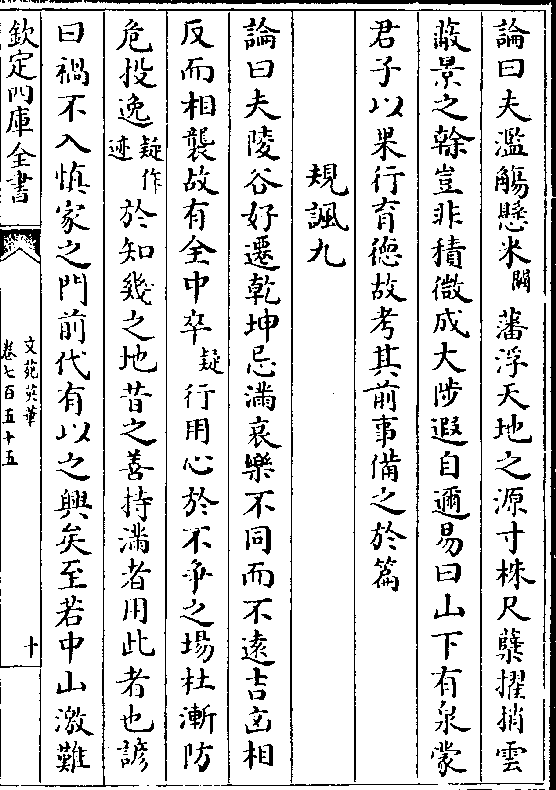 論曰夫濫觴懸米闕蕃浮天地之源寸株尺蘖擢捎雲
蔽景之榦豈非積微成大陟遐自邇易曰山下有泉蒙
君子以果行育德故考其前事備之於篇
規諷九
論曰夫陵谷好遷乾坤忌滿哀樂不同而不逺吉凶相
反而相襲故有全中卒疑行用心於不爭之場杜漸防
危投逸疑作迹於知幾之地昔之善持滿者用此者也諺
曰禍不入慎家之門前代有以之興矣至若中山激難
欽定四庫全書
文苑英華
卷七百五十五
十